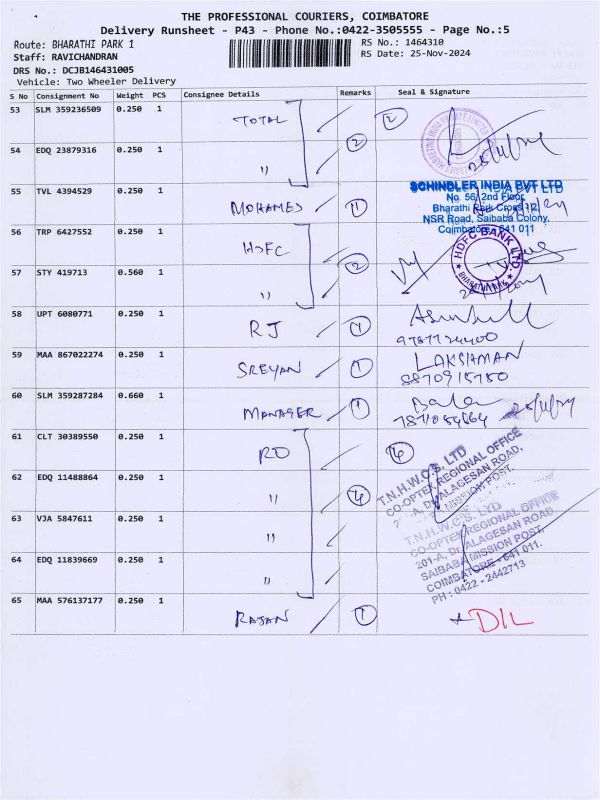 THE PROFESSIONAL COURIERS, COIMBATORE
Delivery Runsheet - P43 - Phone No.:0422-3505555 - Page No.:5
Route: BHARATHI PARK 1
RS No.: 1464310
Staff: RAVICHANDRAN
RS Date: 25-Nov-2024
DRS No.: DCJB146431005
Vehicle: Two Wheeler Delivery
S No Consignment No Weight PCS Consignee Details Remarks Seal & Signature
53 SLM 359236509 0.250 1 TOTAL 2
54 EDQ 23879316 0.250 1 " 2
55 TVL 4394529 0.250 1 MOHAMES 1
SCHINDLER INDIA PVT LTD
No. 56, 2nd Floor,
Bharathi Park Cross
NSR Road, Saibaba Colony,
Coimbatore - 641 011
56 TRP 6427552 0.250 1 HDFC 2
HDFC BANK LTD.
57 STY 419713 0.560 1 "
58 UPT 6080771 0.250 1 RJ 1
59 MAA 867022274 0.250 1 SREYAN 1 LAKSHMAN
8870915750
60 SLM 359287284 0.660 1 MANAGER 1
61 CLT 30389550 0.250 1 RO
T.N.H.W.C.S. LTD
CO-OPTEX REGIONAL OFFICE
62 EDQ 11488864 0.250 1 " 4
63 VJA 5847611 0.250 1 "
T.N.H.W.C.S. LTD
CO-OPTEX REGIONAL OFFICE
201-A, Dr. ALAGESAN ROAD
SAIBABA MISSION POST,
COIMBATORE - 641 011.
PH : 0422 - 2442713
64 EDQ 11839669 0.250 1 "
65 MAA 576137177 0.250 1 RAJAN 1 DIL